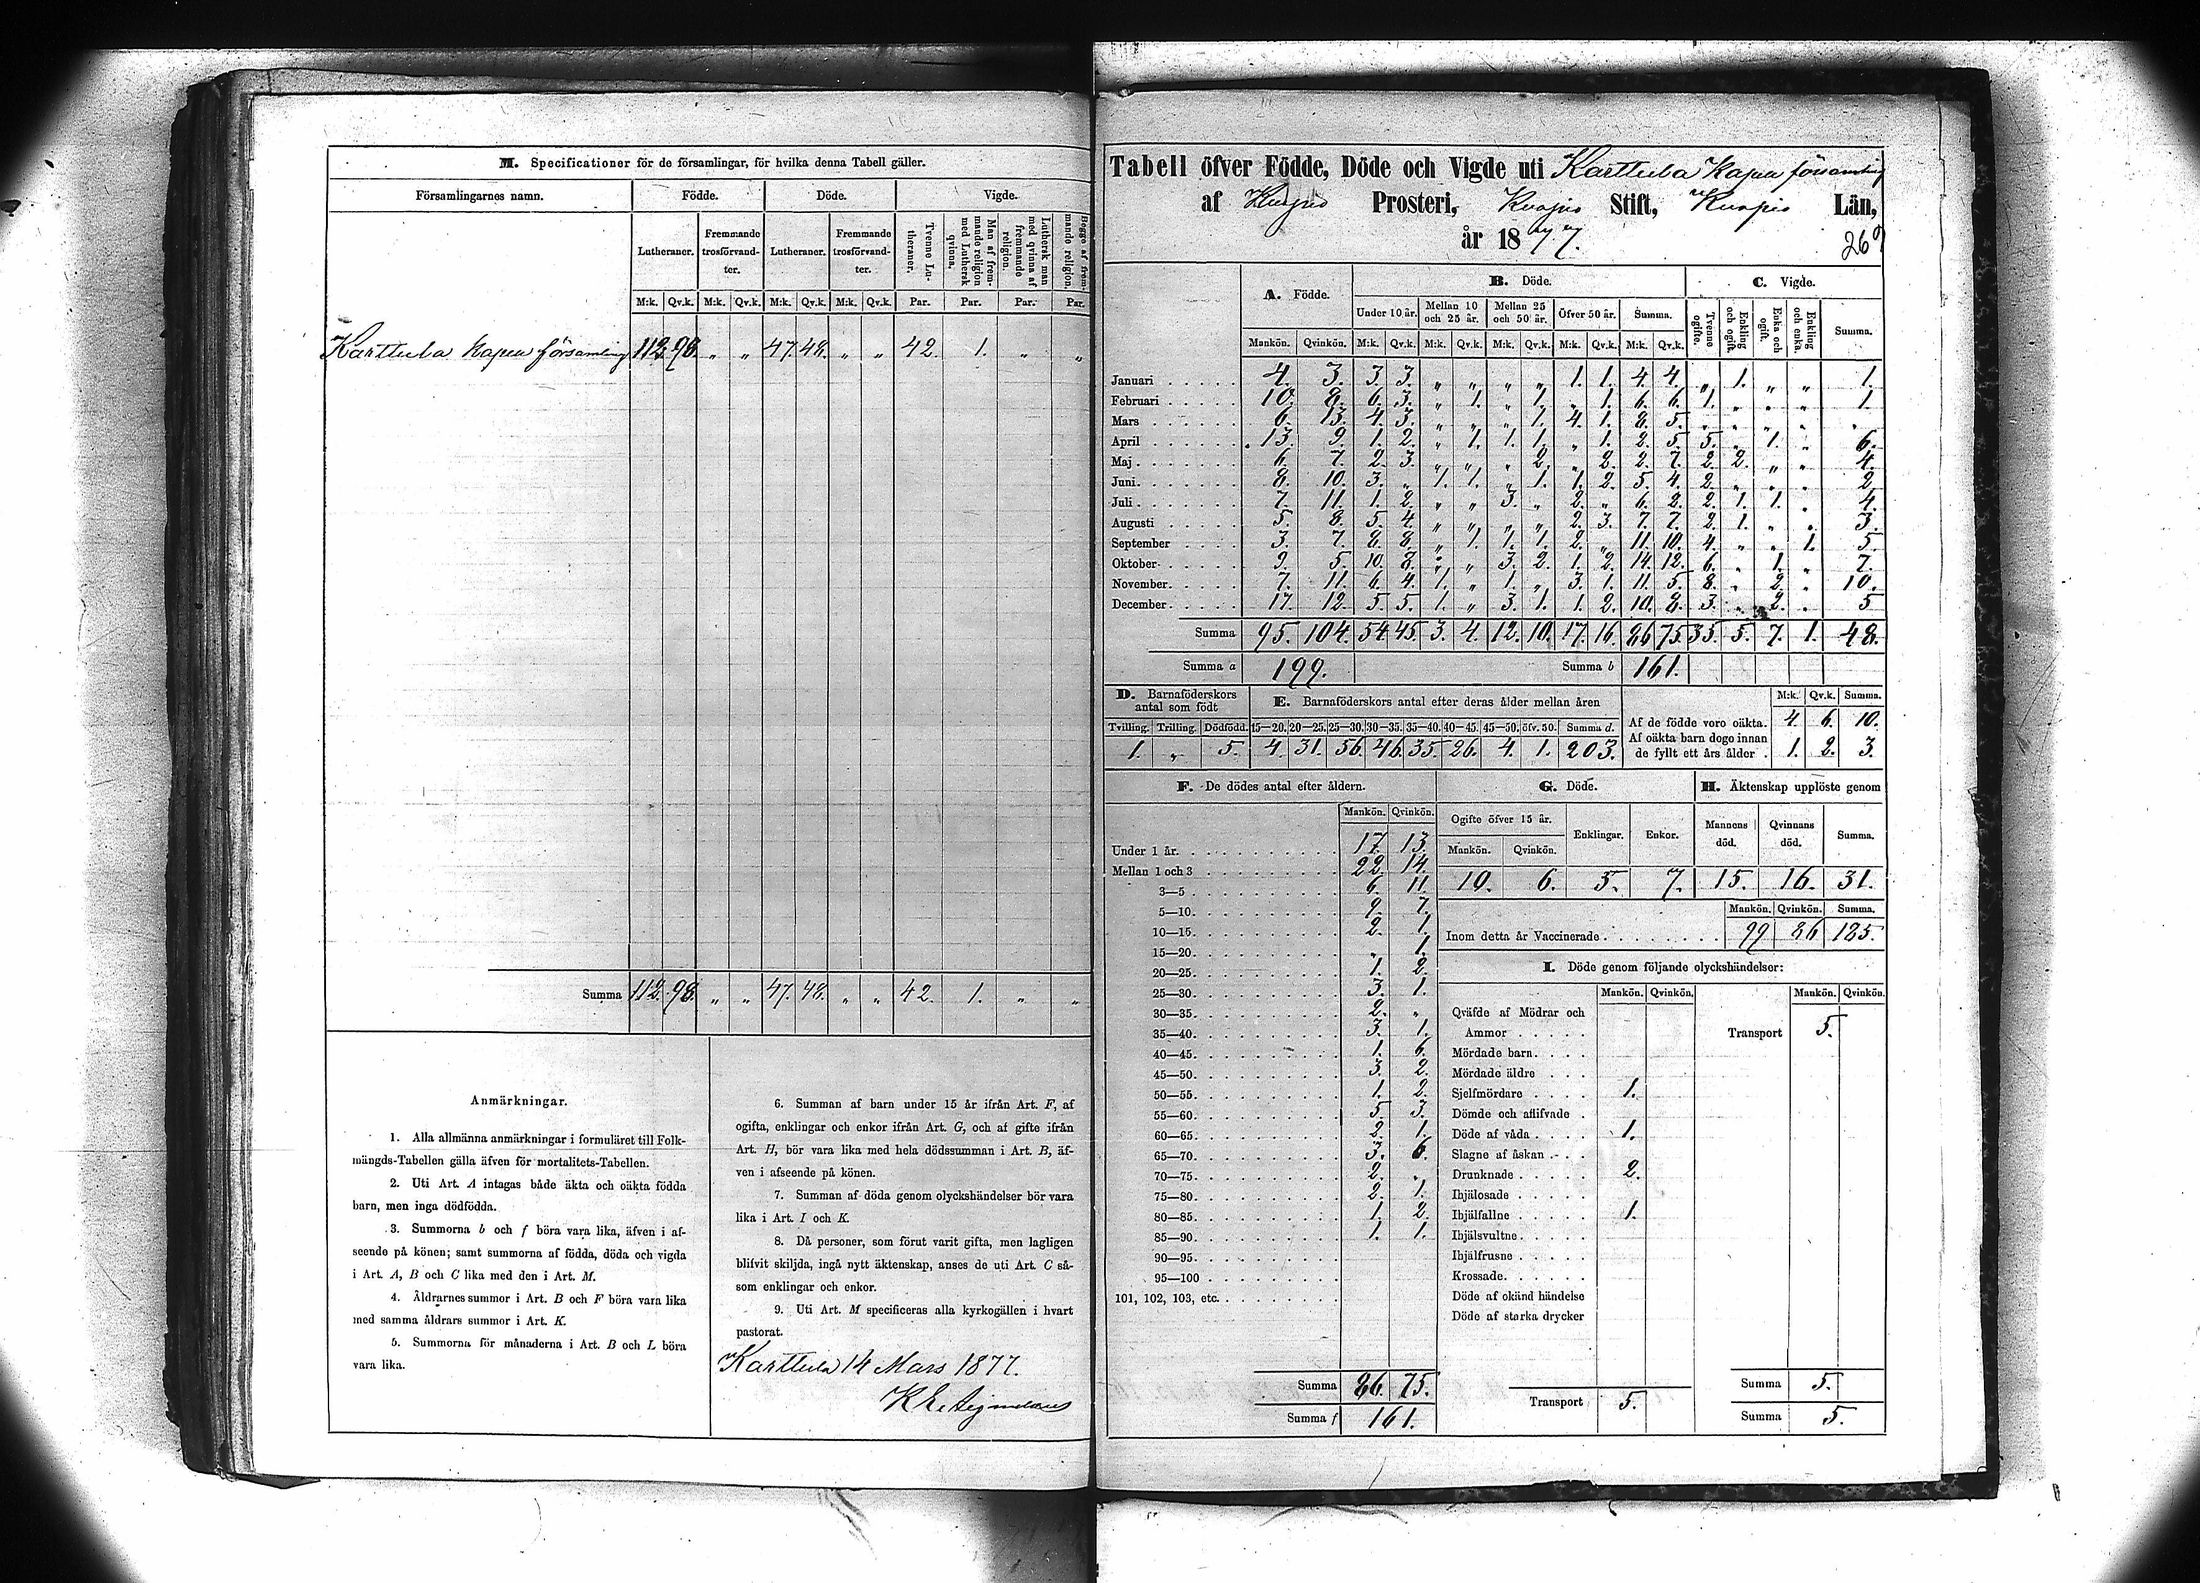 M. Specificationer för de församlingar, för hvilka denna Tabell gäller.
Församlingarnes namn. Födde. Döde. Vigde.
Lutheraner. Fremmande trosförvandter. Lutheraner. Fremmande trosförvandter. Tvenne Lutheraner. Man af fremmande religion med Luthersk qvinna. Luthersk man med qvinna af fremmande religion. Begge af fremmande religion.
M:k. Qv.k. M:k. Qv.k. M:k. Qv.k. M:k. Qv.k. Par. Par. Par. Par.
Karttula kapell församling 112. 98. „ „ 47. 48. „ „ 42. 1. „ „
Summa 112. 98. „ „ 47. 48. „ „ 42. 1. „ „
Anmärkningar.
1. Alla allmänna anmärkningar i formuläret till Folk-
mängds-Tabellen gälla äfven för mortalitets-Tabellen.
2. Uti Art. A intagas både äkta och oäkta födda
barn, men inga dödfödda.
3. Summorna b och f böra vara lika, äfven i af-
seende på könen; samt summorna af födda, döda och vigda
i Art. A, B och C lika med den i Art. M.
4. Åldrarnes summor i Art. B och F böra vara lika
med samma åldrars summor i Art. K.
5. Summorna för månaderna i Art. B och L böra
vara lika.
6. Summan af barn under 15 år ifrån Art. F, af
ogifta, enklingar och enkor ifrån Art. G, och af gifte ifrån
Art. H, bör vara lika med hela dödssumman i Art. B, äf-
ven i afseende på könen.
7. Summan af döda genom olyckshändelser bör vara
lika i Art. I och K.
8. Då personer, som förut varit gifta, men lagligen
blifvit skiljda, ingå nytt äktenskap, anses de uti Art. C så-
som enklingar och enkor.
9. Uti Art. M specificeras alla kyrkogällen i hvart
pastorat.
Karttula 14 Mars 1877.
Tabell öfver Födde, Döde och Vigde uti Karttula kapell församling
af Kuopio Prosteri, Kuopio Stift, Kuopio Län,
år 1877.
A. Födde. B. Döde. C. Vigde.
Under 10 år. Mellan 10 och 25 år. Mellan 25 och 50 år. Öfver 50 år. Summa. Tvenne ogifte. Enkling och ogift. Enka och ogift. Enkling och enka. Summa.
Mankön. Qvinkön. M:k. Qv.k. M:k. Qv.k. M:k. Qv.k. M:k. Qv.k. M:k. Qv.k.
Januari 4. 3. 3. 3. „ „ „ „ 1. 1. 4. 4. „ 1. „ „ 1.
Februari 10. 8. 6. 3. „ 1. „ 1. „ 1. 6. 6. 1. „ „ „ 1.
Mars 6. 13. 4. 3. „ „ „ 1. 4. 1. 8. 5. „ „ „ „ „
April 13. 9. 1. 2. „ 1. 1. 1. „ 1. 2. 5. 5. „ 1. „ 6.
Maj 6. 7. 2. 3. „ „ „ 2. „ 2. 2. 7. 2. 2. „ „ 4.
Juni 8. 10. 3. „ 1. 1. „ 1. 1. 2. 5. 4. 2. „ „ „ 2.
Juli 7. 11. 1. 2. „ „ 3. „ 2. „ 6. 2. 2. 1. 1. „ 4.
Augusti 5. 8. 5. 4. „ „ „ „ 2. 3. 7. 7. 2. 1. „ „ 3.
September 3. 7. 8. 8. „ 1. 1. 1. 2. „ 11. 10. 4. „ „ 1. 5.
Oktober 9. 5. 10. 8. „ „ 3. 2. 1. 2. 14. 12. 6. „ 1. „ 7.
November 7. 11. 6. 4. 1. „ 1. „ 3. 1. 11. 5. 8. „ 2. „ 10.
December 17. 12. 5. 5. 1. „ 3. 1. 1. 2. 10. 8. 3. „ 2. „ 5
Summa 95. 104. 54. 45. 3. 4. 12. 10. 17. 16. 86 75. 35. 5. 7. 1. 48.
Summa a 199. Summa b 161.
D. Barnaföderskors antal som födt
E. Barnaföderskors antal efter deras ålder mellan åren
M:k. Qv.k. Summa.
Tvilling. Trilling. Dödfödd. 15—20. 20—25. 25—30. 30—35. 35—40. 40—45. 45—50. öfv. 50. Summa d.
1. „ 5. 4. 31. 56. 46. 35. 26. 4. 1. 203.
Af de födde voro oäkta. 4. 6. 10.
Af oäkta barn dogo innan
de fyllt ett års ålder. 1. 2. 3.
F. De dödes antal efter åldern.
Mankön. Qvinkön.
Under 1 år. 17. 13.
Mellan 1 och 3 22. 14.
3—5 6. 11.
5—10. 9. 7.
10—15. 2. 1.
15—20. „ 1.
20—25. 1. 2.
25—30. 3. 1.
30—35. 2. „
35—40. 3. 1.
40—45. 1. 6.
45—50. 3. 2.
50—55. 1. 2.
55—60. 5. 3.
60—65. 2. 1.
65—70. 3. 6.
70—75. 2. „
75—80. 2. 1.
80—85. 1. 2.
85—90. 1. 1.
90—95.
95—100
101, 102, 103, etc.
Summa 86. 75.
Summa f 161.
G. Döde.
Ogifte öfver 15 år. Enklingar. Enkor.
Mankön. Qvinkön.
10. 6. 5. 7.
H. Äktenskap upplöste genom
Mannens död. Qvinnans död. Summa.
15. 16. 31.
Mankön. Qvinkön. Summa.
Inom detta år Vaccinerade 99 86 185.
I. Döde genom följande olyckshändelser:
Mankön. Qvinkön. Mankön. Qvinkön.
Qväfde af Mödrar och
Ammor Transport 5.
Mördade barn.
Mördade äldre
Sjelfmördare 1.
Dömde och aflifvade
Döde af våda 1.
Slagne af åskan
Drunknade 2.
Ihjälosade
Ihjälfallne 1.
Ihjälsvultne
Ihjälfrusne
Krossade.
Döde af okänd händelse
Döde af starka drycker
Summa 5.
Transport 5. Summa 5.